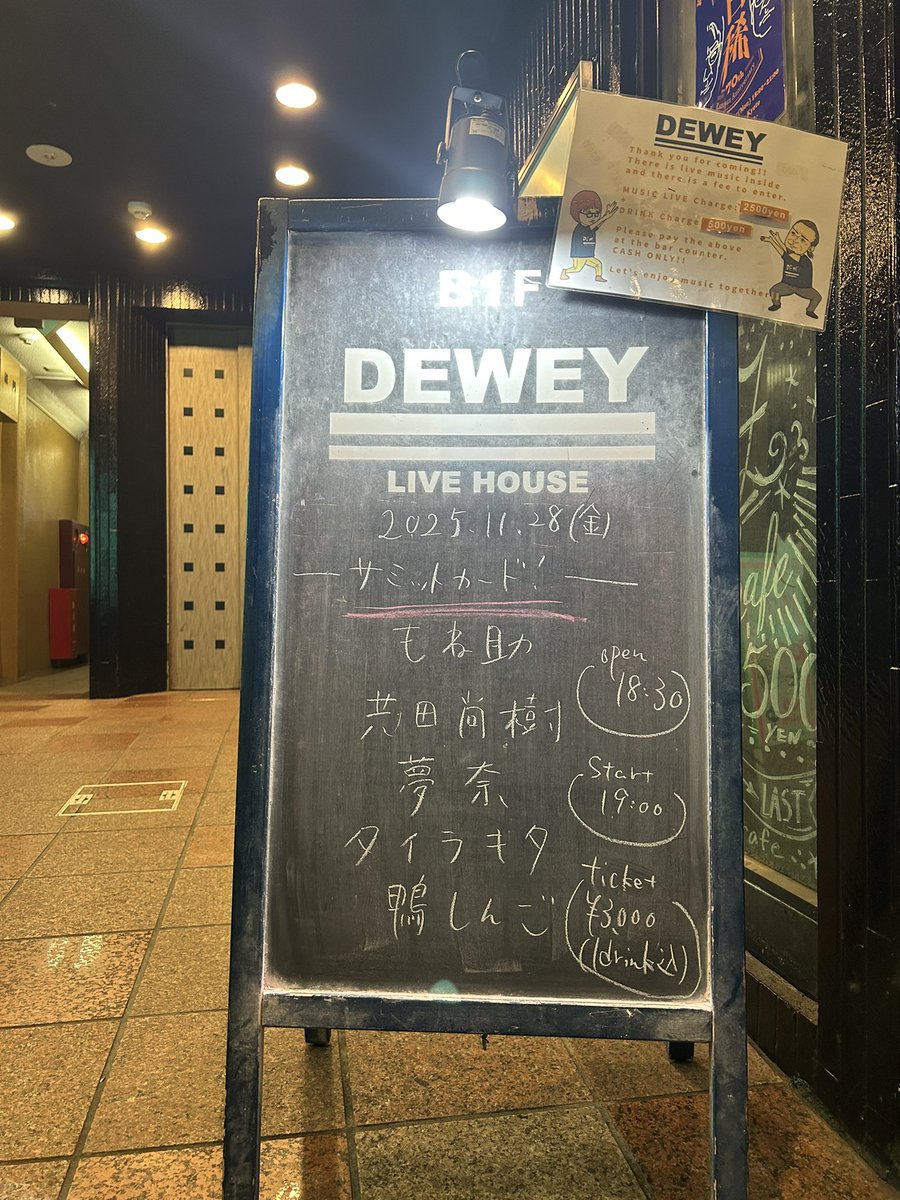 DEWEY
Thank you for coming!!
There is live music inside
and there is a fee to enter.
MUSIC LIVE Charge: 2500yen
+
DRINK Charge: 500yen
Please pay the above
at the bar counter.
CASH ONLY!!
Let's enjoy music together
B1F
DEWEY
LIVE HOUSE
2025.11.28(金)
サミットカード!
もね助
荒田尚樹
夢奈
タイラキタ
鴨しんご
open
18:30
Start
19:00
ticket
¥3,000
(1drink込)
70th
500
YEN
LAST